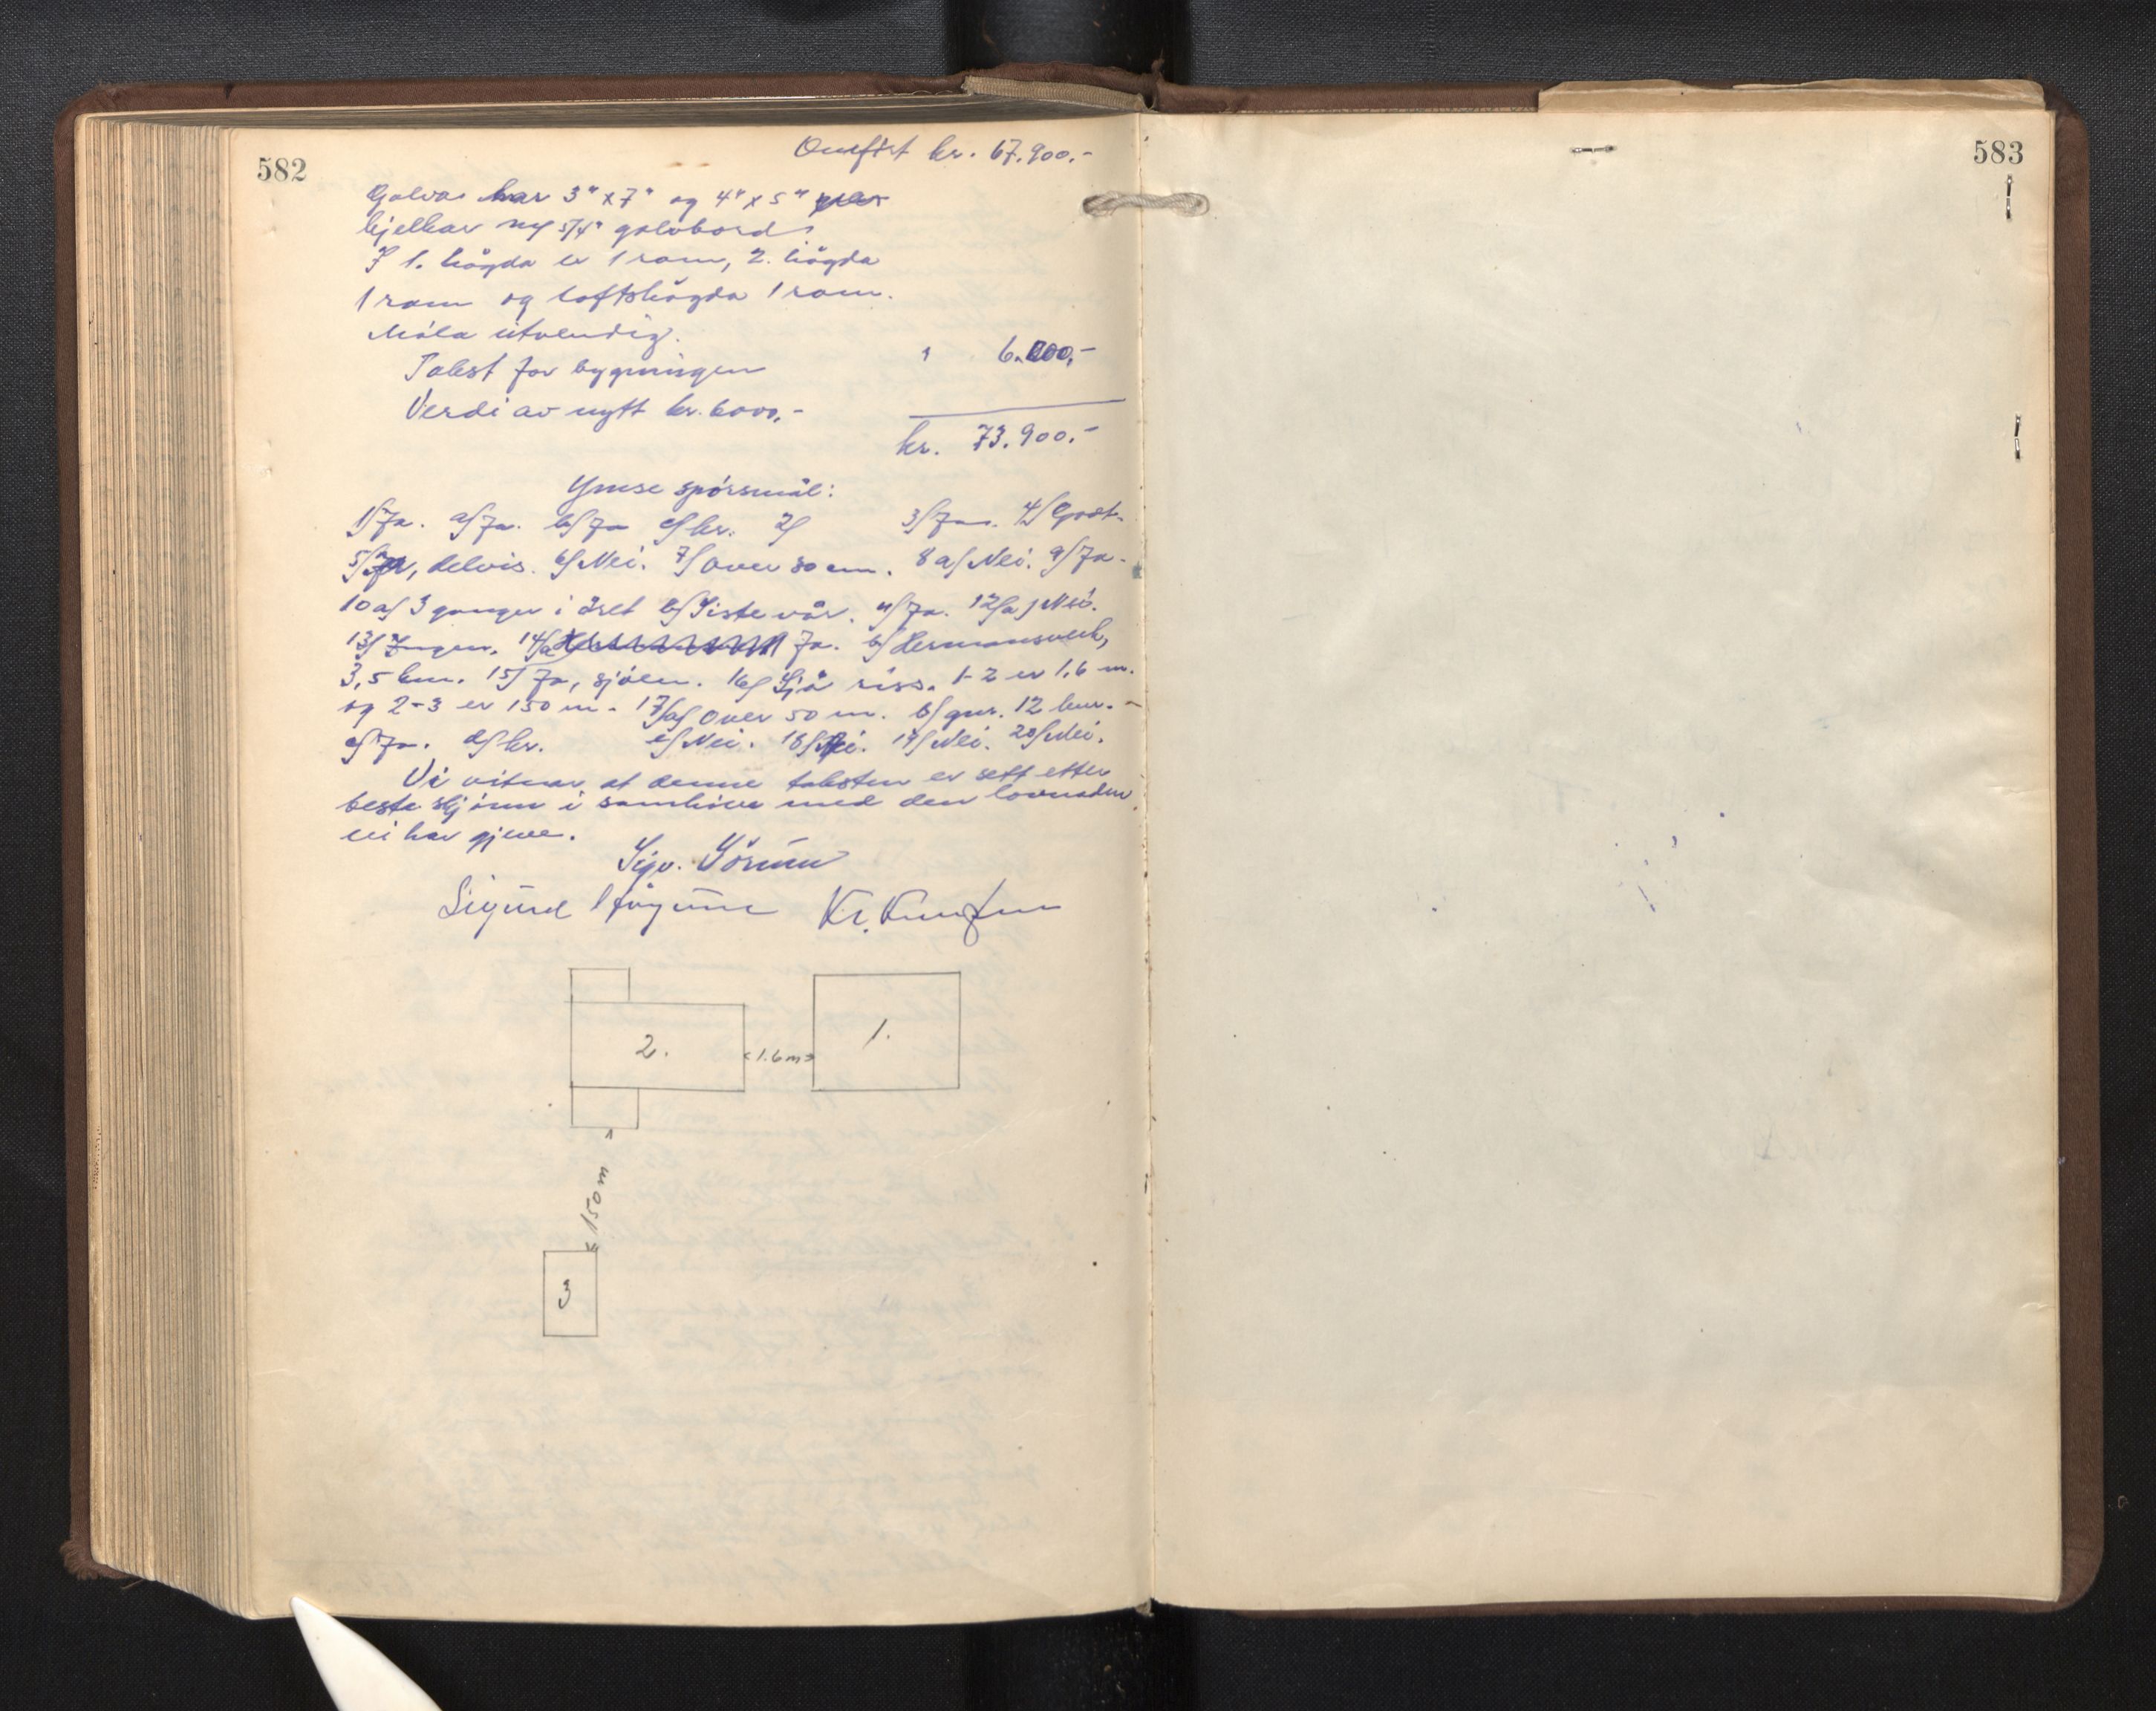 582
Omført kr. 67.900.-
Golva har 3" x 7" og 4" x 5"
bjelkar 5/4" golvbord
I 1. högda er 1 rom, 2. högda
1 rom og loftshögda 1 rom.
Måla utvendig.
Takst for bygningen " 6.000,-
Verdi av nytt kr. 6000,-
kr. 73.900.-
Ymse spörsmål:
1/ Ja. a/ Ja. b/ Ja c/ kr. 2/ 3/ 4/ Godt.
5/ Ja, delvis. 6/ Nei. 7/ Over 80 cm. 8 a/ Nei. 9/ Ja.
10 a/ 3 ganger i året b/ Siste vår. 11/ Ja. 12/a/ Nei.
13/ Ingen. 14/a Ja. b/ Hermansverk,
3,5 km. 15/ Ja, sjöen. 16/ Sjå riss. 1-2 er 1,6 m.
og 2-3 er 150 m. 17/a/ Over 50 m. b/ 12 km.
c/ Ja. d/ kr. e/ Nei. 18/ Nei. 19/ Nei. 20/ Nei.
Vi vitnar at denne taksten er sett etter
beste skjönn i samhöve med den lovnaden
vi har gjeve.
Sigurd
2.
1.6m
1.
150m
3
583